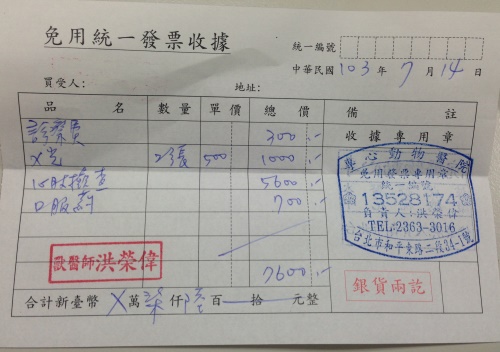 免用統一發票收據
統一編號
中華民國 103 年 7 月 14 日
買受人:
地址:
品名 數量 單價 總價 備註
診察費 300.- 收據專用章
X光 2張 500 1000.-
心臟檢查 5600.-
口服藥 700.-
專心動物醫院
免用發票專用章
統一編號
13528174
負責人:洪榮偉
TEL:2363-3016
台北市和平東路二段34-1號
獸醫師 洪榮偉
7600.-
銀貨兩訖
合計新臺幣 X 萬 柒 仟 陸 百 拾 元整